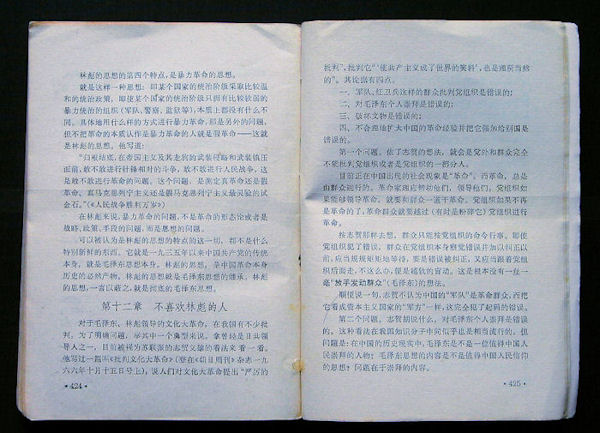 林彪的思想的第四个特点，是暴力革命的思想。
就是这样一种思想：即某个国家的统治阶级采取比较温
和的统治政策，即使某个国家的统治阶级只拥有比较软弱的
暴力统治的组织（军队、警察、监狱等），本质上都没有什么不
同。具体地用什么样的方式进行暴力革命，那是另外的问题，
但不把革命的本质认作是暴力革命的人就是假革命——这就
是林彪的思想。他写道：
“归根结底，在帝国主义及其走狗的武装侵略和武装镇压
面前，敢不敢进行针锋相对的斗争，敢不敢进行人民战争，这
是敢不敢进行革命的问题。这个问题，是测定真革命还是假
革命、真马克思列宁主义还是假马克思列宁主义最灵验的试
金石。”（《人民战争胜利万岁》）
在林彪来说，暴力革命的问题，不是革命的形态论或者是
战略、政策、手段的问题，而是思想的问题。
可以被认为是林彪的思想的特点的这一切，都不是什么
特别新鲜的东西。它就是一九三五年以来中国共产党的传统
本身，就是毛泽东思想本身。林彪的思想，是中国革命本身
历史的必然产物，林彪的思想是毛泽东思想的继承。林彪的
思想，一言以蔽之，就是彻底的毛泽东思想。
第十二章　不喜欢林彪的人
对于毛泽东、林彪领导的文化大革命，在我国有不少批
判，为了明确问题，举其中一个典型来说。拿曾经是日共领
导人之一、目前被视为苏联派的志贺义雄的看法来看一看。
他写过一篇《批判文化大革命》（登在《朝日周刊》杂志一九
六六年十月十五日号上），说人们对文化大革命提出“严厉的
·424·
批判”，批判它“‘使共产主义成了世界的笑料’，也是理所当然
的”。其论据有四点。
一、军队、红卫兵这样的群众批判党组织是错误的；
二、对毛泽东个人崇拜是错误的；
三、破坏文物是错误的；
四、不合理地扩大中国的革命经验并把它强加给别国是
错误的。
第一个问题，依了志贺的想法，就会是党外和群众完全
不能批判党组织或者是党组织的一部分人。
目前正在中国出现的社会现象是“革命”。而革命，总是
由群众进行的，革命家则应帮助他们，领导他们。党组织如
果能够领导革命，就要和群众一道干革命。党组织如果不再
是革命的了，革命群众就要越过（有时是粉碎它）党组织进行
革命。
按志贺那样去想，群众只能按党组织的命令行事，即使
党组织犯了错误，群众在党组织本身察觉错误并加以纠正以
前，应当规规矩矩地等待，要是错误被纠正，又应当跟着党组
织后面走，不这么办，便是越轨的盲动。这是根本没有一点一
毫“放手发动群众”（毛泽东）的想法。
顺便说一句，志贺不认为中国的“军队”是革命群众，而把
它看成资本主义国家的“军方”一样，这完全犯了起码的错误。
第二个问题，志贺胡说什么，对毛泽东个人崇拜是错误
的。这种看法在我国知识分子中间似乎也是相当流行的。但
问题是：在中国的历史现实中，毛泽东是不是一位值得中国人
民崇拜的人物；毛泽东思想的内容是不是值得中国人民信仰
的思想？问题在于崇拜的内容。
·425·